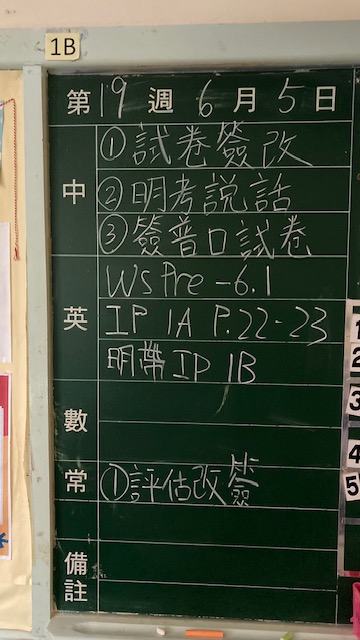 1B
第19週6月5日
中
①試卷簽改
②明考說話
③簽普口試卷
英
WS Pre-6.1
IP 1A P.22-23
明帶IP 1B
數
常
①評估改簽
備註
1
2
3
4
5